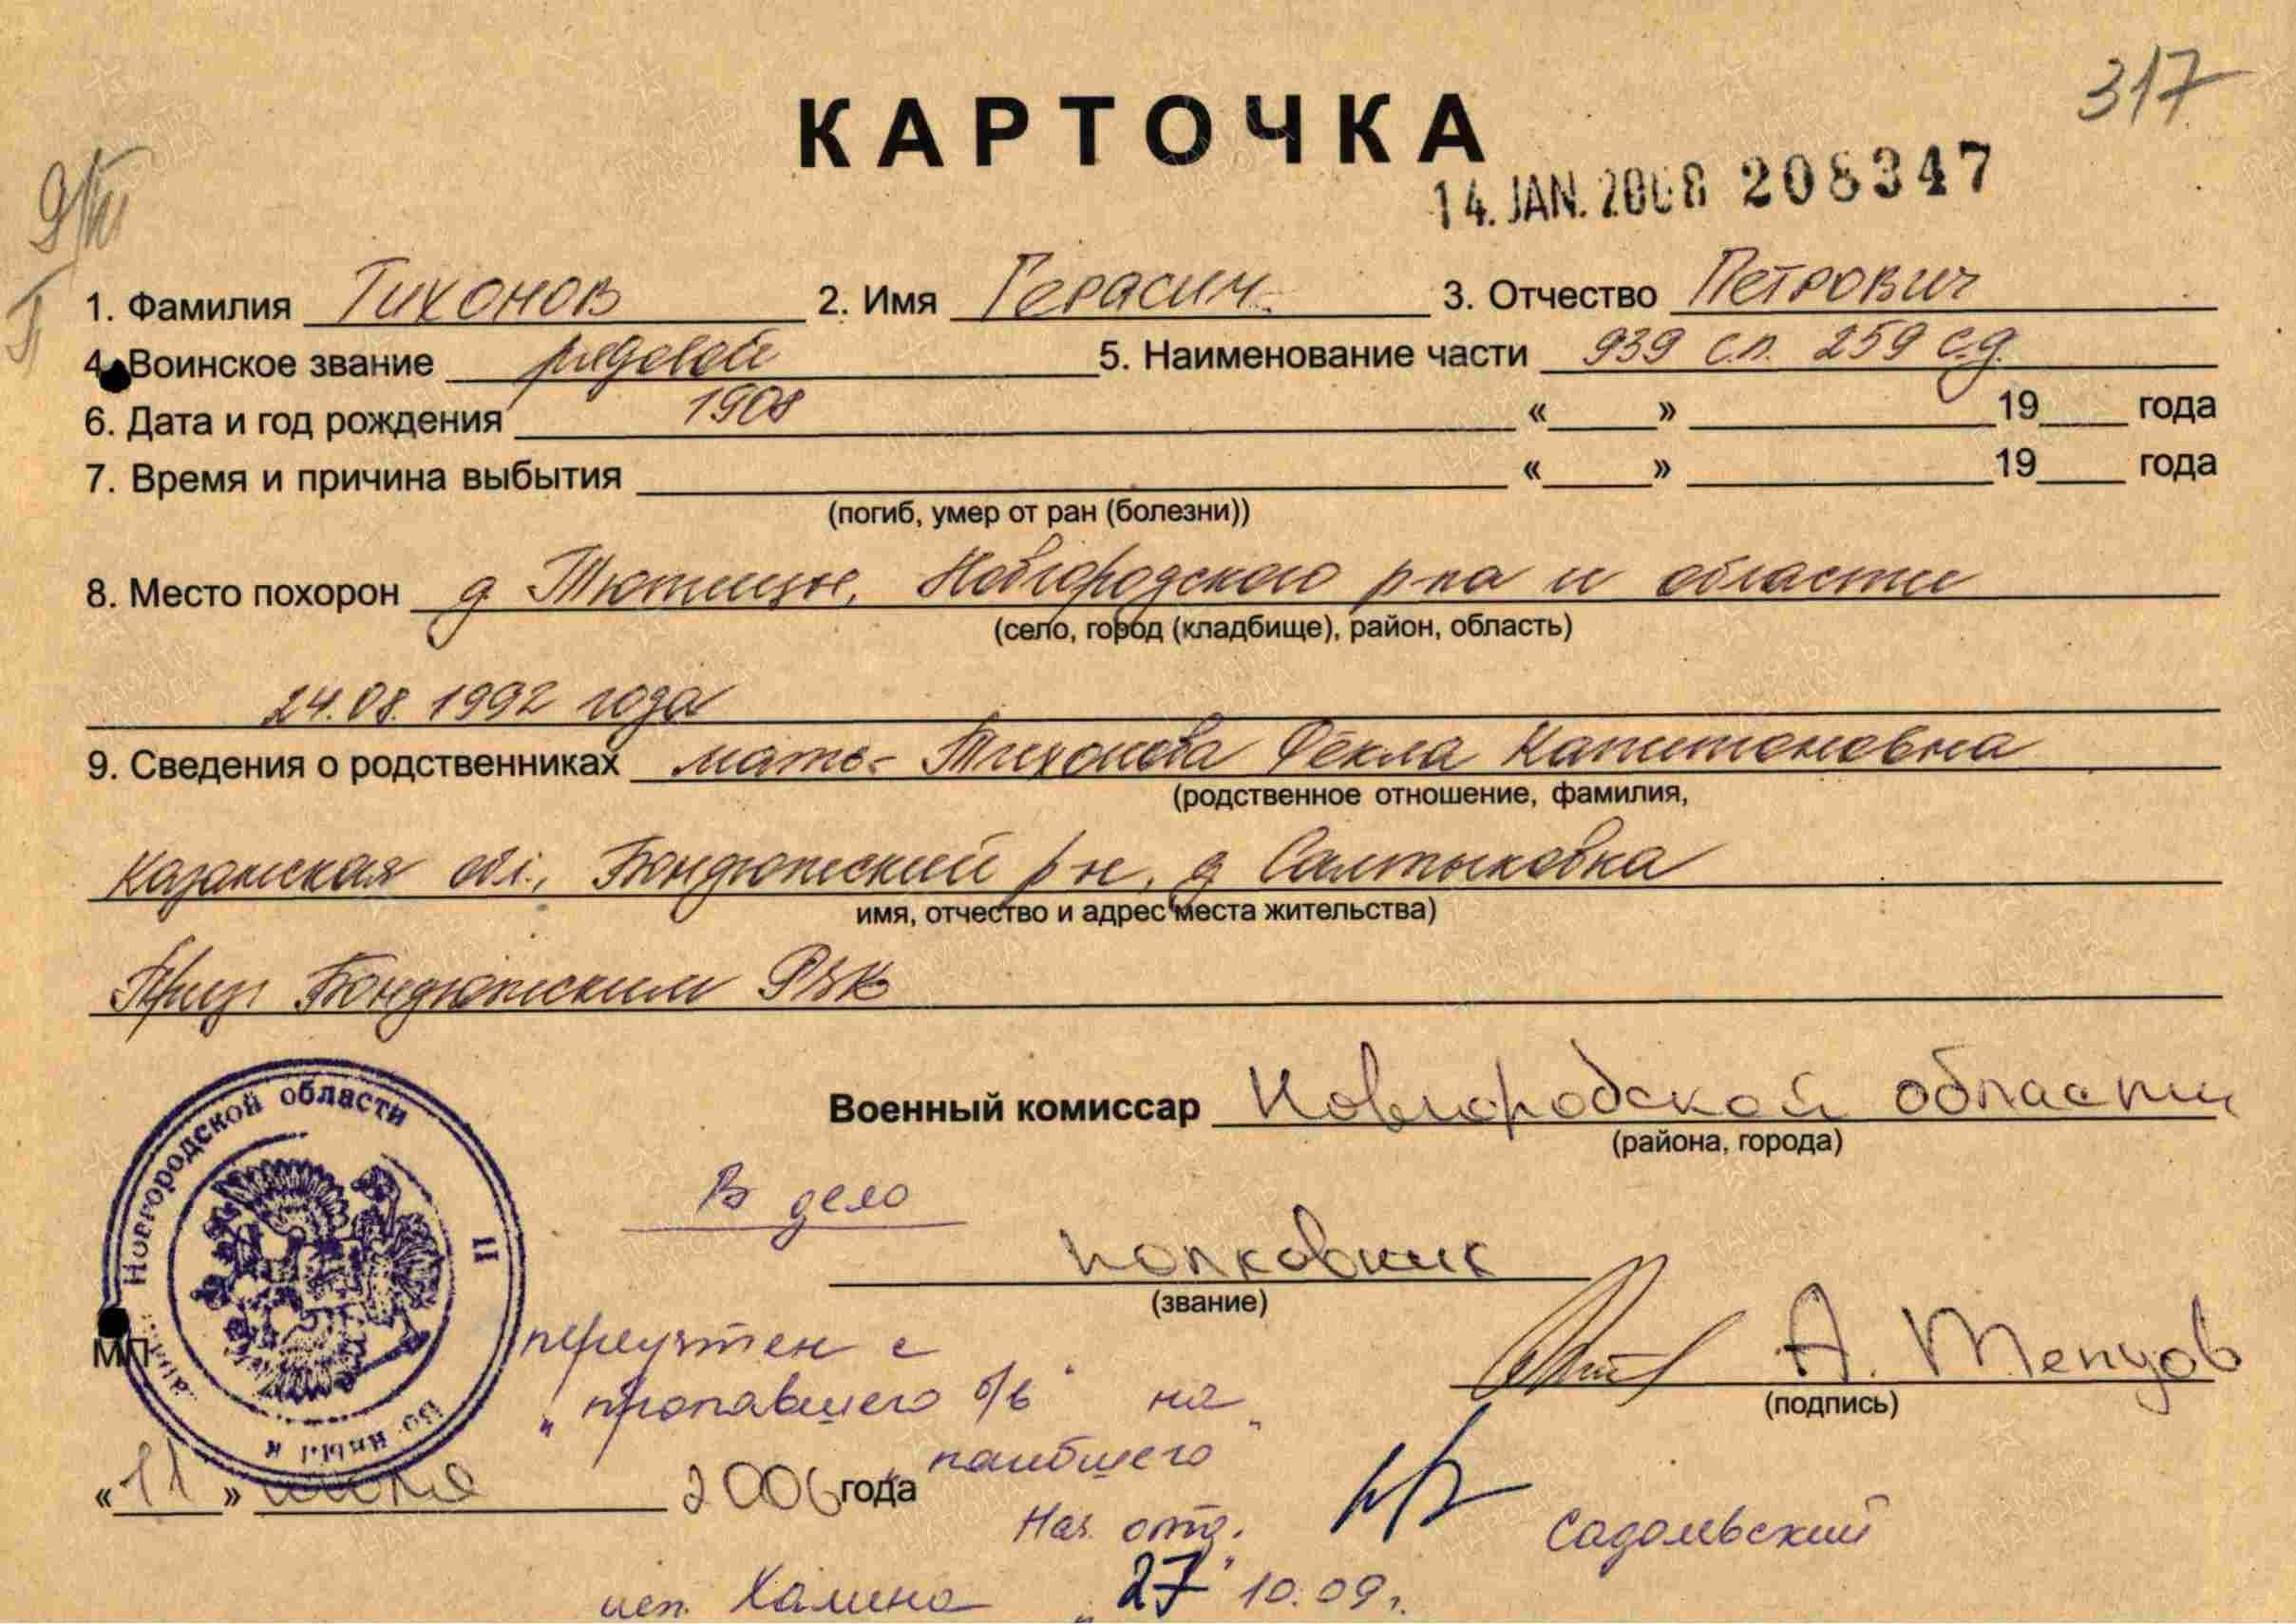 317
КАРТОЧКА
14. JAN. 2008 208347
9/III
1. Фамилия Тихонов 2. Имя Герасим 3. Отчество Петрович
4. Воинское звание рядовой 5. Наименование части 939 с.п. 259 с.д.
6. Дата и год рождения 1908 « » 19 года
7. Время и причина выбытия « » 19 года
(погиб, умер от ран (болезни))
8. Место похорон д Тютицы, Новгородского р-на и области
(село, город (кладбище), район, область)
24.08. 1992 года
9. Сведения о родственниках мать- Тихонова Фёкла Капитоновна
(родственное отношение, фамилия,
Казанская обл., Бондюжский р-н, д Салтыковка
имя, отчество и адрес места жительства)
Приз. Бондюжским РВК
Новгородской области
Военный комиссар Новгородской области
(района, города)
В дело
полковник
(звание)
МП
переучтен с
"пропавшего б/в" на
"погибшего"
А. Тепцов
(подпись)
«11» июля 2006 года
Нач. отд. Садольский
исп. Халина "27" 10.09г.